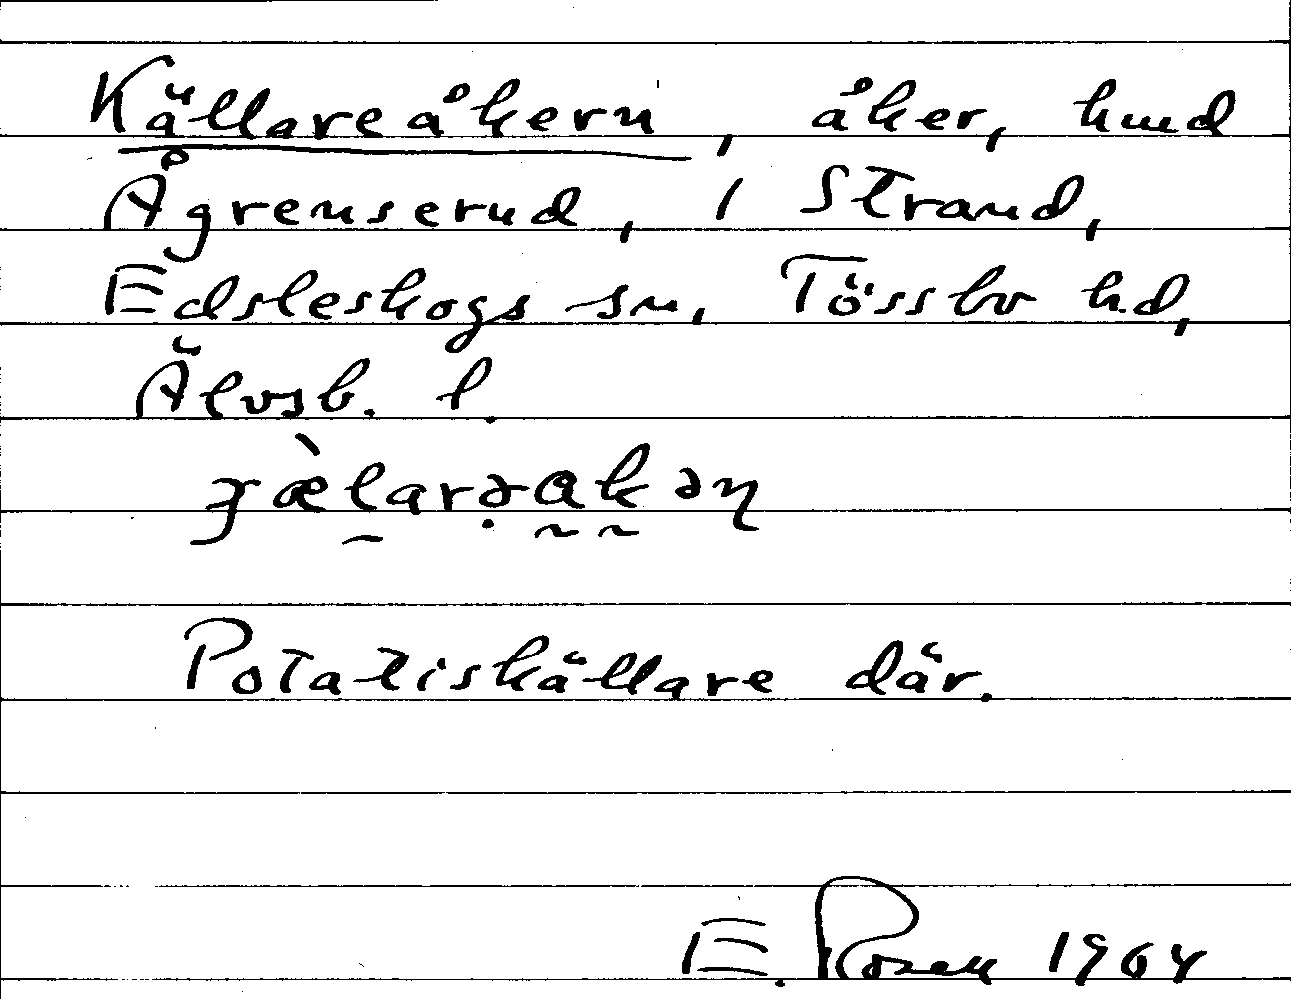 Källareåkern, åker, hmd
Ågrenserud, 1 Strand,
Edsleskogs sn, Tössbo hd,
Älvsb. l.
Potatiskällare där.
E. Rosell 1964